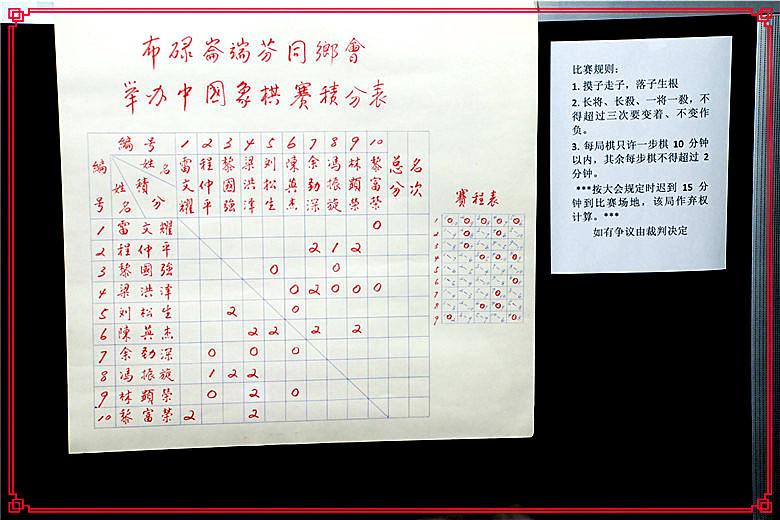 布碌崙端芬同鄉會
举办中國象棋賽積分表
編號 1 2 3 4 5 6 7 8 9 10
編號 姓名 積分 姓名 雷文耀 程仲平 黎國強 梁洪淳 刘松生 陳英杰 余劲深 馮振旋 林顕榮 黎富榮 总分 名次
1 雷文耀 0
2 程仲平 2 1 2
3 黎國強 0 0
4 梁洪淳 0 2 0 0 0
5 刘松生 2 0
6 陳英杰 2 2 2 2
7 余劲深 0 0 0
8 馮振旋 1 2 2
9 林顕榮 0 2 0
10 黎富榮 2 2
賽程表
1
2
3
4
5
6
7
8
9
比赛规则:
1. 摸子走子，落子生根
2. 长将、长殺、一将一殺，不
得超过三次要变着、不变作
负。
3. 每局棋只许一步棋 10 分钟
以内，其余每步棋不得超过 2
分钟。
***按大会规定时迟到 15 分
钟到比赛场地，该局作弃权
计算。***
如有争议由裁判决定